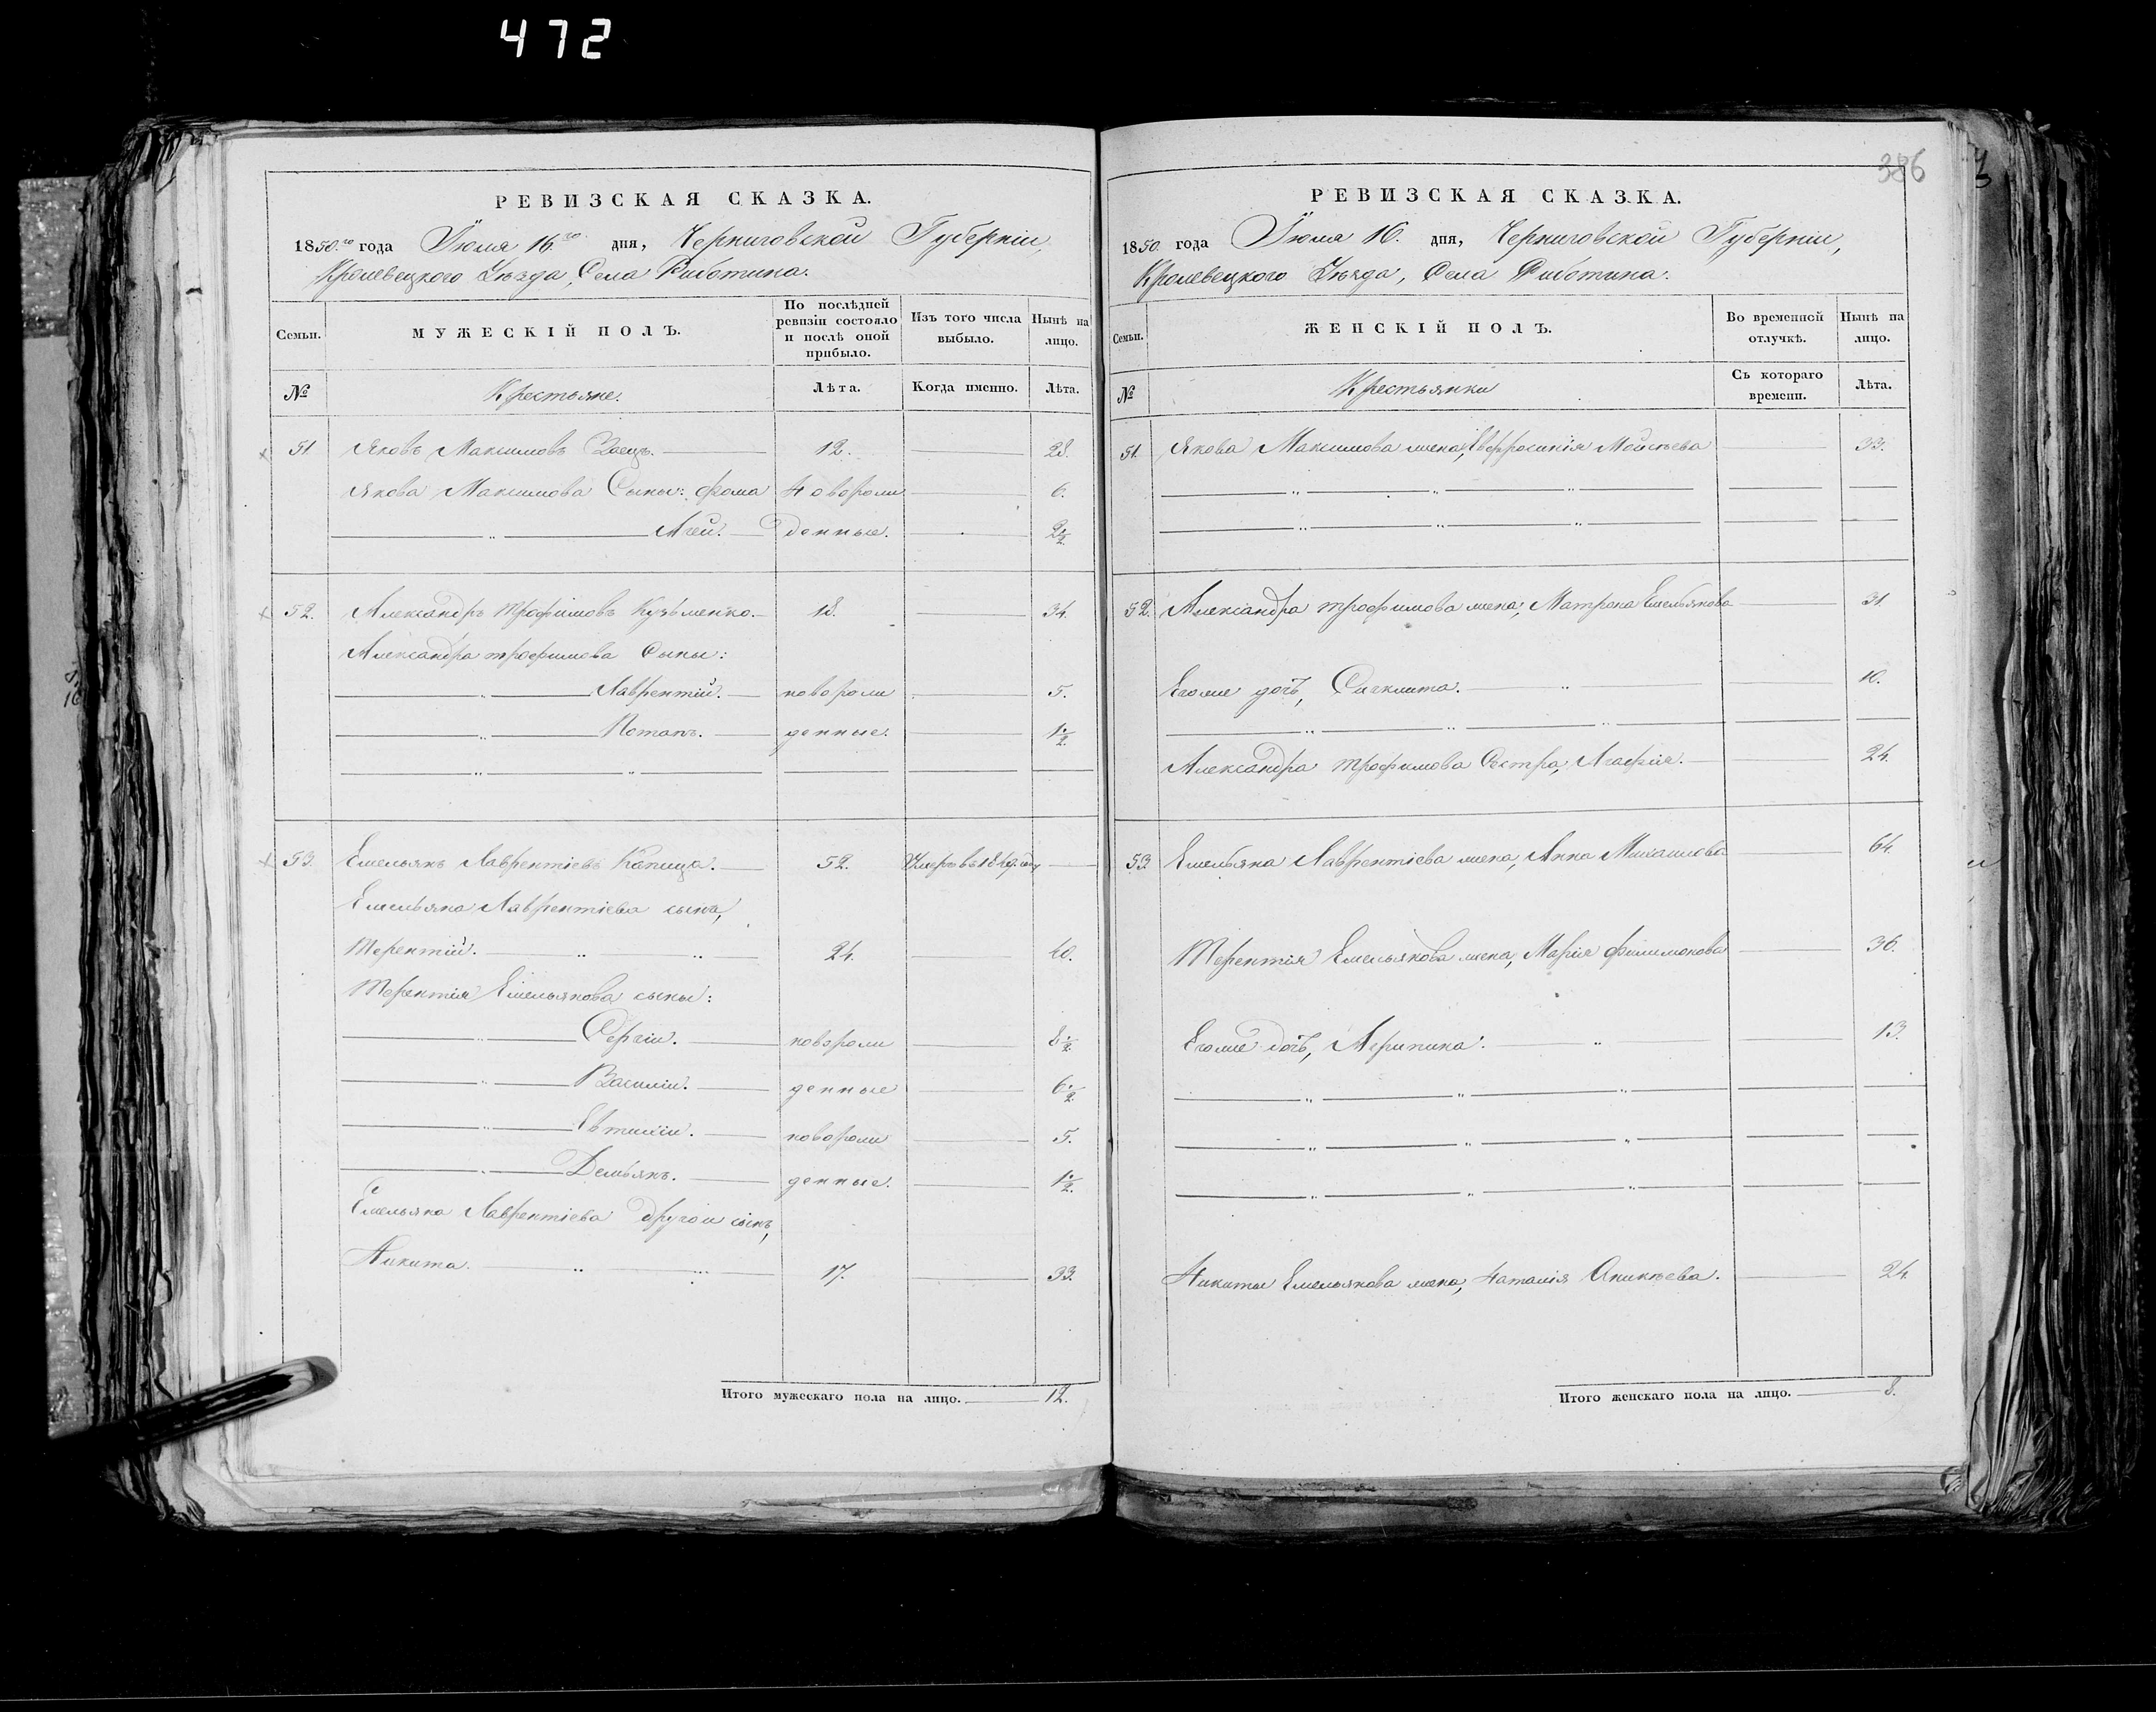 472
РЕВИЗСКАЯ СКАЗКА.
1850.го года Іюля 16.го дня, Черниговской Губерніи,
Кролевецкого Уѣзда, Села Риботина.
Семьи. МУЖЕСКІЙ ПОЛЪ. По послѣдней ревизіи состояло и послѣ оной прибыло. Изъ того числа выбыло. Нынѣ на лицо.
№ Крестьяне. Лѣта. Когда именно. Лѣта.
51 Яковъ Максимовъ Заецъ. 12. 28.
Якова Максимова Сыны: Фома Новорож 6.
Агей. денные. 2½
52. Александръ Трофимовъ Кузьменко. 18. 34.
Александра Трофимова Сыны:
Лаврентій. новорож 5.
Потапъ. денные. 1½
53. Емельянъ Лаврентіевъ Капица. 52. Умеръ въ 1849. году
Емельяна Лаврентіева сынъ,
Терентій. 24. 40.
Терентія Емельянова сыны:
Сергій. новорож 8½
Василій. денные 6½
Евтихій. новорож 5.
Демьянъ. денные. 1½
Емельяна Лаврентіева другой сынъ,
Никита. 17. 33.
Итого мужескаго пола на лицо. 12.
386
РЕВИЗСКАЯ СКАЗКА.
1850. года Іюля 16. дня, Черниговской Губерніи,
Кролевецкого Уѣзда, Села Риботина.
Семьи. ЖЕНСКІЙ ПОЛЪ. Во временной отлучкѣ. Нынѣ на лицо.
№ Крестьянки Съ котораго времени. Лѣта.
51. Якова Максимова жена, Евфросинія Моисѣева 33.
52. Александра Трофимова жена, Матрона Емельянова 31.
Егоже дочь, 10.
Александра Трофимова Сестра, Агафія. 24.
53. Емельяна Лаврентіева жена, Анна Михайлова 64
Терентія Емельянова жена, Марія Филимонова 36.
Егоже дочь, Агрипина. 13.
Никиты Емельянова жена, Наталія Аникѣева. 24.
Итого женскаго пола на лицо. 8.